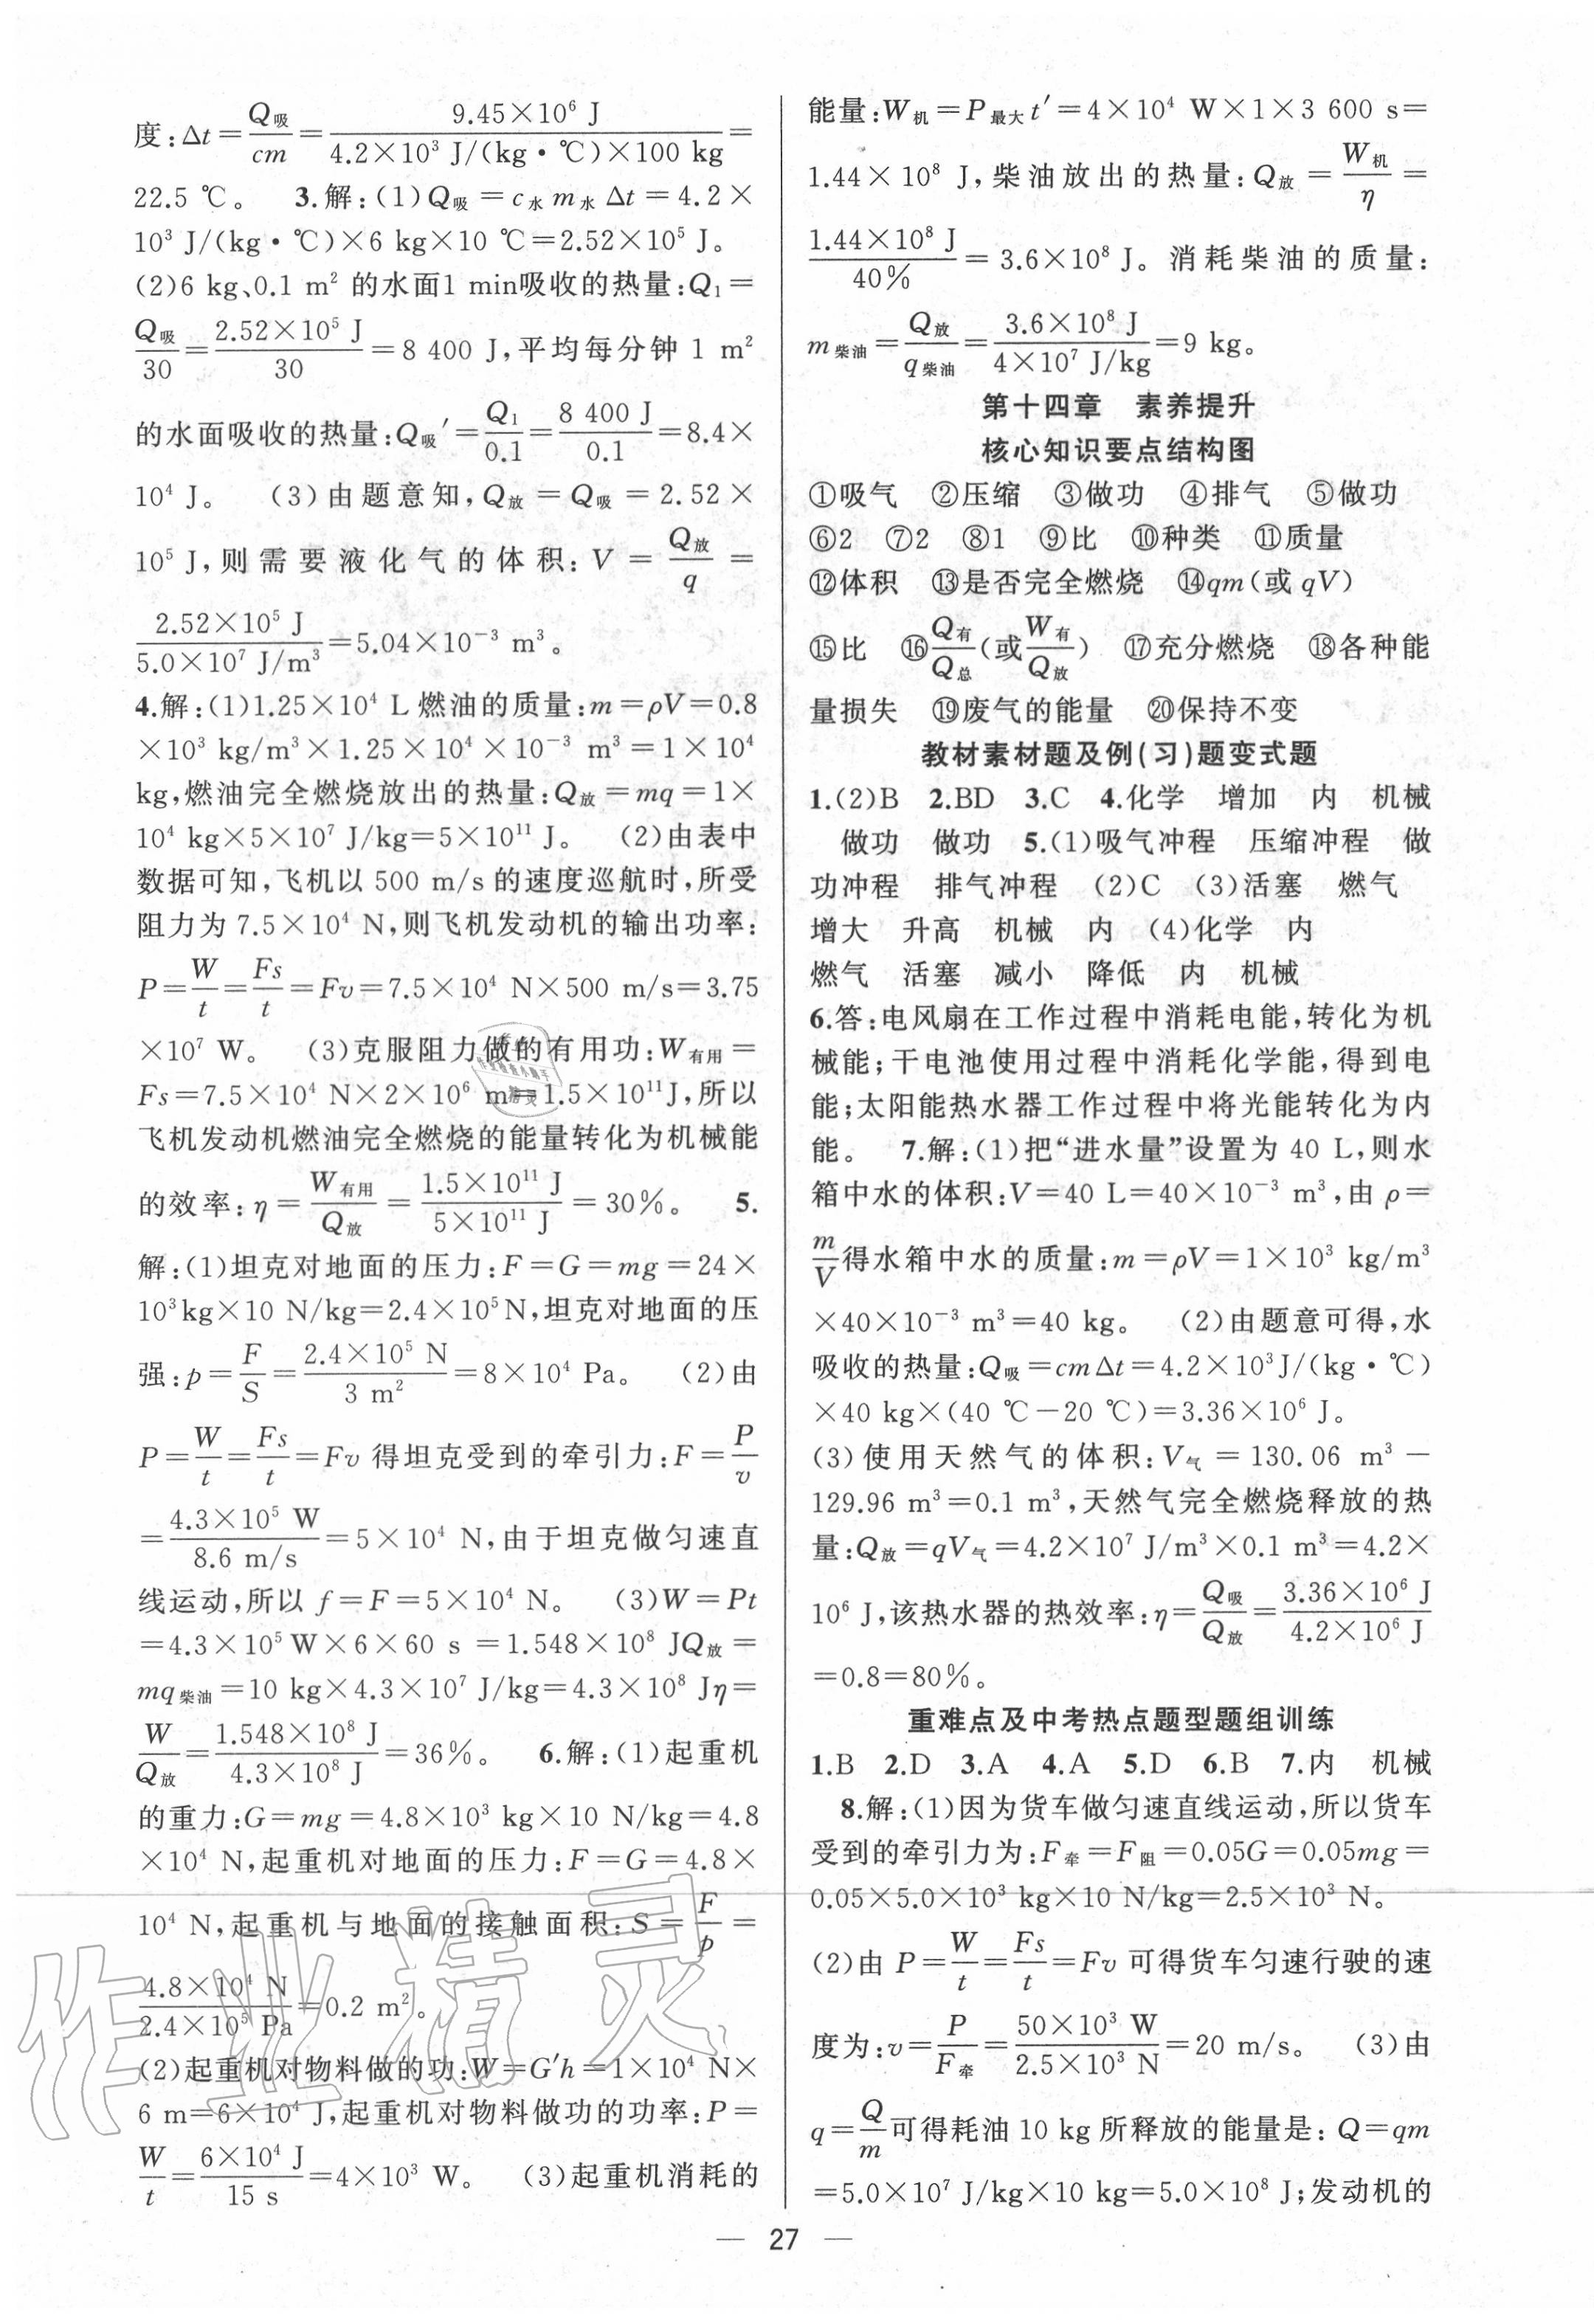 度:Δt=Q吸/cm=9.45×10⁶ J/(4.2×10³ J/(kg·℃)×100 kg)=
22.5 ℃。 3.解:(1)Q吸=c水m水Δt=4.2×
10³ J/(kg·℃)×6 kg×10 ℃=2.52×10⁵ J。
(2)6 kg、0.1 m² 的水面1 min吸收的热量:Q₁=
Q吸/30=2.52×10⁵ J/30=8 400 J,平均每分钟 1 m²
的水面吸收的热量:Q吸′=Q₁/0.1=8 400 J/0.1=8.4×
10⁴ J。 (3)由题意知,Q放=Q吸=2.52×
10⁵ J,则需要液化气的体积:V=Q放/q=
2.52×10⁵ J/5.0×10⁷ J/m³=5.04×10⁻³ m³。
4.解:(1)1.25×10⁴ L 燃油的质量:m=ρV=0.8
×10³ kg/m³×1.25×10⁴×10⁻³ m³=1×10⁴
kg,燃油完全燃烧放出的热量:Q放=mq=1×
10⁴ kg×5×10⁷ J/kg=5×10¹¹ J。 (2)由表中
数据可知,飞机以 500 m/s 的速度巡航时,所受
阻力为 7.5×10⁴ N,则飞机发动机的输出功率:
P=W/t=Fs/t=Fv=7.5×10⁴ N×500 m/s=3.75
×10⁷ W。 (3)克服阻力做的有用功:W有用=
Fs=7.5×10⁴ N×2×10⁶ m=1.5×10¹¹J,所以
飞机发动机燃油完全燃烧的能量转化为机械能
的效率:η=W有用/Q放=1.5×10¹¹ J/5×10¹¹ J=30%。 5.
解:(1)坦克对地面的压力:F=G=mg=24×
10³kg×10 N/kg=2.4×10⁵N,坦克对地面的压
强:p=F/S=2.4×10⁵ N/3 m²=8×10⁴ Pa。 (2)由
P=W/t=Fs/t=Fv 得坦克受到的牵引力:F=P/v
=4.3×10⁵ W/8.6 m/s=5×10⁴ N,由于坦克做匀速直
线运动,所以 f=F=5×10⁴ N。 (3)W=Pt
=4.3×10⁵W×6×60 s=1.548×10⁸ JQ放=
mq柴油=10 kg×4.3×10⁷ J/kg=4.3×10⁸ Jη=
W/Q放=1.548×10⁸ J/4.3×10⁸ J=36%。 6.解:(1)起重机
的重力:G=mg=4.8×10³ kg×10 N/kg=4.8
×10⁴ N,起重机对地面的压力:F=G=4.8×
10⁴ N,起重机与地面的接触面积:S=F/p=
4.8×10⁴ N/2.4×10⁵ Pa=0.2 m²。
(2)起重机对物料做的功:W=G′h=1×10⁴ N×
6 m=6×10⁴ J,起重机对物料做功的功率:P=
W/t=6×10⁴ J/15 s=4×10³ W。 (3)起重机消耗的
能量:W机=P最大t′=4×10⁴ W×1×3 600 s=
1.44×10⁸ J,柴油放出的热量:Q放=W机/η=
1.44×10⁸ J/40%=3.6×10⁸ J。消耗柴油的质量:
m柴油=Q放/q柴油=3.6×10⁸ J/4×10⁷ J/kg=9 kg。
第十四章 素养提升
核心知识要点结构图
①吸气 ②压缩 ③做功 ④排气 ⑤做功
⑥2 ⑦2 ⑧1 ⑨比 ⑩种类 ⑪质量
⑫体积 ⑬是否完全燃烧 ⑭qm(或 qV)
⑮比 ⑯Q有/Q总(或W有/Q放) ⑰充分燃烧 ⑱各种能
量损失 ⑲废气的能量 ⑳保持不变
教材素材题及例(习)题变式题
1.(2)B 2.BD 3.C 4.化学 增加 内 机械
做功 做功 5.(1)吸气冲程 压缩冲程 做
功冲程 排气冲程 (2)C (3)活塞 燃气
增大 升高 机械 内 (4)化学 内
燃气 活塞 减小 降低 内 机械
6.答:电风扇在工作过程中消耗电能,转化为机
械能;干电池使用过程中消耗化学能,得到电
能;太阳能热水器工作过程中将光能转化为内
能。 7.解:(1)把“进水量”设置为 40 L,则水
箱中水的体积:V=40 L=40×10⁻³ m³,由 ρ=
m/V得水箱中水的质量:m=ρV=1×10³ kg/m³
×40×10⁻³ m³=40 kg。 (2)由题意可得,水
吸收的热量:Q吸=cmΔt=4.2×10³J/(kg·℃)
×40 kg×(40 ℃-20 ℃)=3.36×10⁶ J。
(3)使用天然气的体积:V气=130.06 m³-
129.96 m³=0.1 m³,天然气完全燃烧释放的热
量:Q放=qV气=4.2×10⁷ J/m³×0.1 m³=4.2×
10⁶ J,该热水器的热效率:η=Q吸/Q放=3.36×10⁶ J/4.2×10⁶ J
=0.8=80%。
重难点及中考热点题型题组训练
1.B 2.D 3.A 4.A 5.D 6.B 7.内 机械
8.解:(1)因为货车做匀速直线运动,所以货车
受到的牵引力为:F牵=F阻=0.05G=0.05mg=
0.05×5.0×10³ kg×10 N/kg=2.5×10³ N。
(2)由 P=W/t=Fs/t=Fv 可得货车匀速行驶的速
度为:v=P/F牵=50×10³ W/2.5×10³ N=20 m/s。 (3)由
q=Q/m可得耗油 10 kg 所释放的能量是:Q=qm
=5.0×10⁷ J/kg×10 kg=5.0×10⁸ J;发动机的
— 27 —
作业精灵